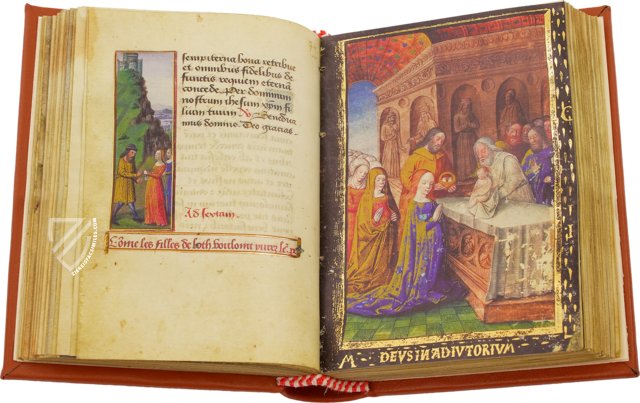 sempiterna bona retribue
et omnibus fidelibus de
functis requiem eternã
concede. Per dominum
nostrum ihesum xp̃m fi
lium tuum. Benedica
mus domino. Deo gracias.
Ad sextam.
Cõme les filles de loth
DEVS IN ADIVTORIVM
ZIEREISFACSIMILES.COM